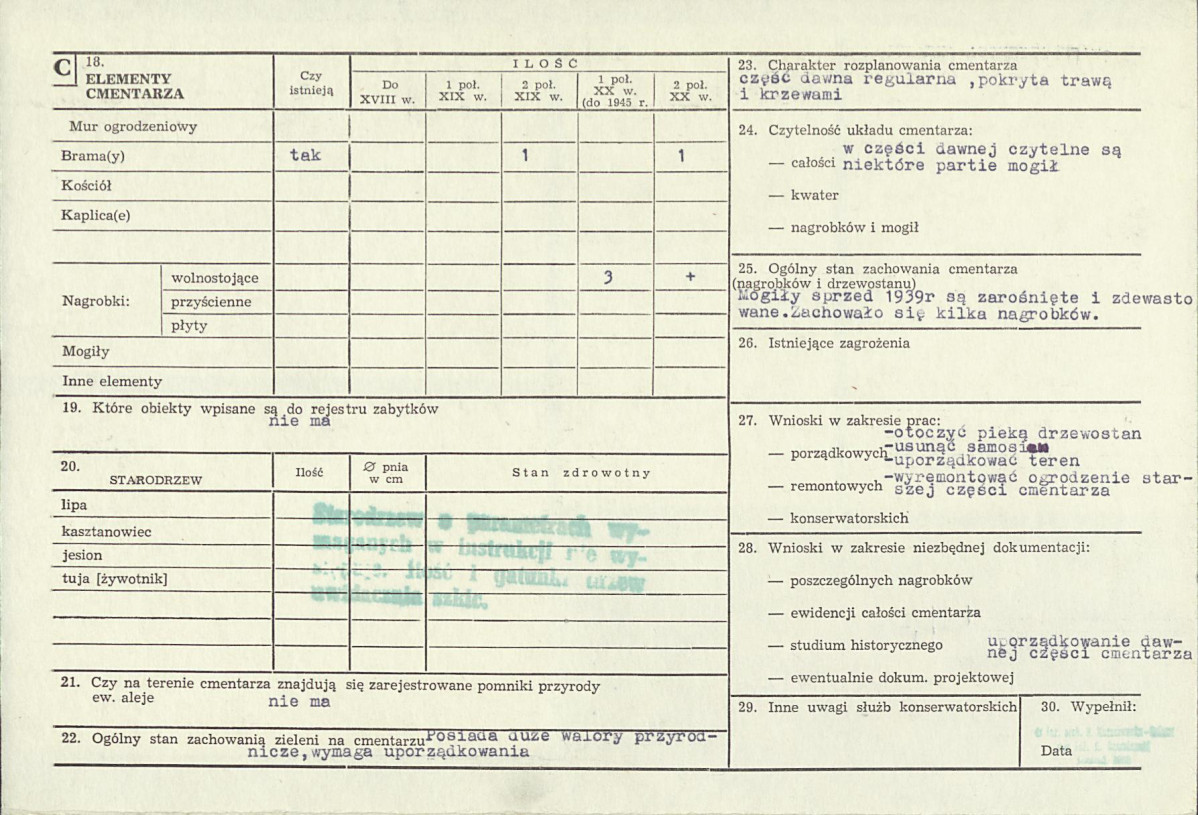 C 18. ELEMENTY CMENTARZA
Czy istnieją
ILOŚĆ
Do XVIII w.
1 poł. XIX w.
2 poł. XIX w.
1 poł. XX w. (do 1945 r.
2 poł. XX w.
Mur ogrodzeniowy
Brama(y) tak 1 1
Kościół
Kaplica(e)
Nagrobki:
wolnostojące 3 +
przyścienne
płyty
Mogiły
Inne elementy
19. Które obiekty wpisane są do rejestru zabytków
nie ma
20. STARODRZEW
Ilość
Ø pnia w cm
Stan zdrowotny
lipa
kasztanowiec
jesion
tuja [żywotnik]
Starodrzew o parametrach wy-
maganych w instrukcji nie wy-
ilość i gatunki drzew
uwidacznia szkic.
21. Czy na terenie cmentarza znajdują się zarejestrowane pomniki przyrody
ew. aleje nie ma
22. Ogólny stan zachowania zieleni na cmentarzu Posiada duże walory przyrod-
nicze,wymaga uporządkowania
23. Charakter rozplanowania cmentarza
część dawna regularna ,pokryta trawą
i krzewami
24. Czytelność układu cmentarza:
w części dawnej czytelne są
— całości niektóre partie mogił
— kwater
— nagrobków i mogił
25. Ogólny stan zachowania cmentarza
(nagrobków i drzewostanu)
Mogiły sprzed 1939r są zarośnięte i zdewasto
wane.Zachowało się kilka nagrobków.
26. Istniejące zagrożenia
27. Wnioski w zakresie prac:
-otoczyć pieką drzewostan
-usunąć
— porządkowych
-uporządkować teren
-wyremontować ogrodzenie star-
— remontowych szej części cmentarza
— konserwatorskich
28. Wnioski w zakresie niezbędnej dokumentacji:
— poszczególnych nagrobków
— ewidencji całości cmentarza
— studium historycznego uporządkowanie daw-
nej części cmentarza
— ewentualnie dokum. projektowej
29. Inne uwagi służb konserwatorskich
30. Wypełnił:
Data